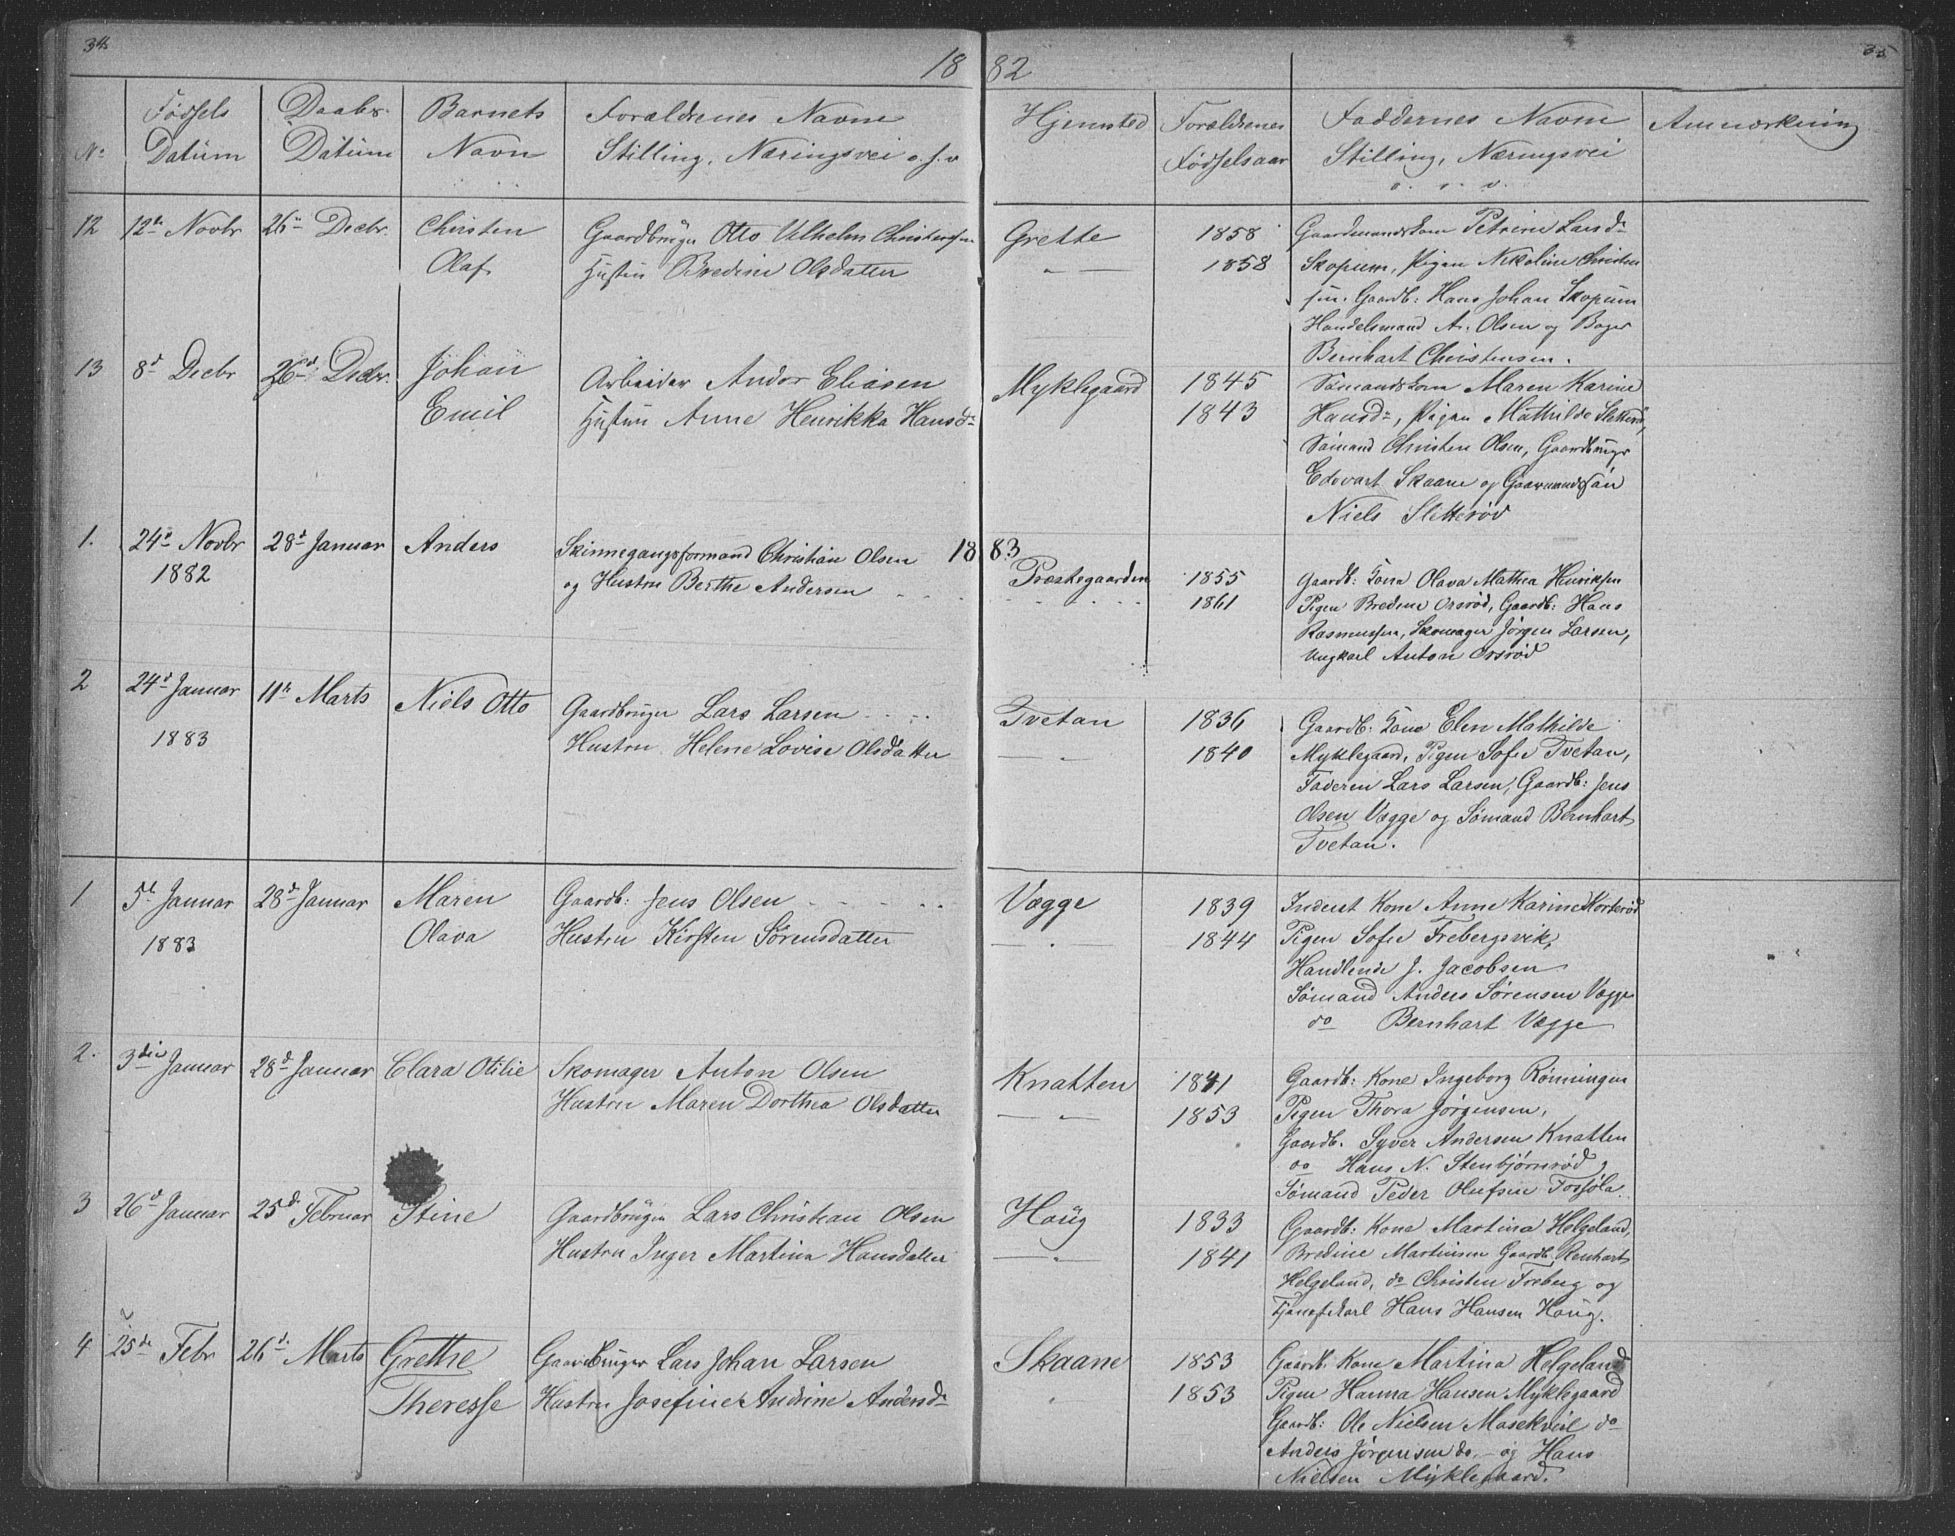 34
35
18 82
No
Fødsels
Datum
Daabs
Datum
Barnets
Navn
Forældrenes Navne
Stilling, Næringsvei o. s. v
Hjemsted
Forældrenes
Fødselsaar
Faddernes Navne
Stilling, Næringsvei
o. s. v.
Anmærkning
12 12te Novbr 26de Decbr. Christen
Olaf
Gaardbruger Otto Vilhelm Christensen
Hustru Bredine Olsdatter
Grette 1858
— " — 1858
Gaardmandskone Petrine Larsd.
Skopum, Pigen Nikoline Christen
sen. Gaardb: Hans Johan Skopum
Handelsmand A. Olsen og Bager
Bernhart Christensen.
13 8d Decbr 26d Decbr. Johan
Emil
Arbeider Andor Eliasen
Hustru Anne Henrikka Hansd.
Myklegaard 1845
1843
Sømandskone Maren Karine
Hansd., Pigen Mathilde Sletterød,
Sømand Christen Olsen, Gaardbruger
Edvart Skaane og Gaarmandssøn
Niels Sletterød
18 83
1. 24d Novbr 28d Januar Anders
1882
Skinnegangsformand Christian Olsen
og Hustru Berthe Andersen
Præstegaarden 1855
1861
Gaardb: Kona Olava Mathea Henriksen
Pigen Bredine Orsrød, Gaardb: Hans
Rasmussen, Skomager Jørgen Larsen,
Ungkarl Anton Orsrød
2 24d Januar 11te Marts Niels Otto
1883
Gaardbruger Lars Larsen
Hustru Helene Lovise Olsdatter
Tvetan 1836
— " — 1840
Gaardb: Kone Elen Mathilde
Myklegaard, Pigen Sofie Tvetan,
Faderen Lars Larsen, Gaardb: Jens
Olsen Vægge og Sømand Bernhart
Tvetan.
1 5te Januar 28d Januar Maren
1883 Olava
Gaardb: Jens Olsen
Hustru Kirsten Sørensdatter
Vægge 1839
— " 1844
Inderst Kone Anne Karine Korterød
Pigen Sofie Frebergsvik,
Handlende J. Jacobsen
Sømand Anders Sørensen Vægge
do Bernhart Vægge
2. 3die Januar 28d Januar Clara Otilie
Skomager Anton Olsen
Hustru Maren Dorthea Olsdatter
Knatten 1841
— " — 1853
Gaardb: Kone Ingeborg Rønningen
Pigen Thora Jørgensen,
Gaardb. Syver Andersen Knatten
do Hans N. Stenbjørnrød
Sømand Peder Olufsen Fossøla.
3 26d Januar 25d Februar Stine
Gaardbrugen Lars Christian Olsen
Hustru Inger Martina Hansdatter
Houg 1833
— " — 1841
Gaardb: Kone Martina Helgeland,
Bredine Martinsen Gaardb. Renhart
Helgeland, do Christen Freberg og
Tjenestekarl Hans Hansen Houg.
4 25de Febr 26d Marts Grethe
Theresse
Gaardbruger Lars Johan Larsen
Hustru Josefine Andrine Andersd.
Skaane 1853
" 1853
Gaardb: Kone Martina Helgeland
Pigen Hanna Hansen Myklegaard
Gaardb: Ole Nielsen Masekvil do
Anders Jørgensen do. - og Hans
Nielsen Myklegaard.